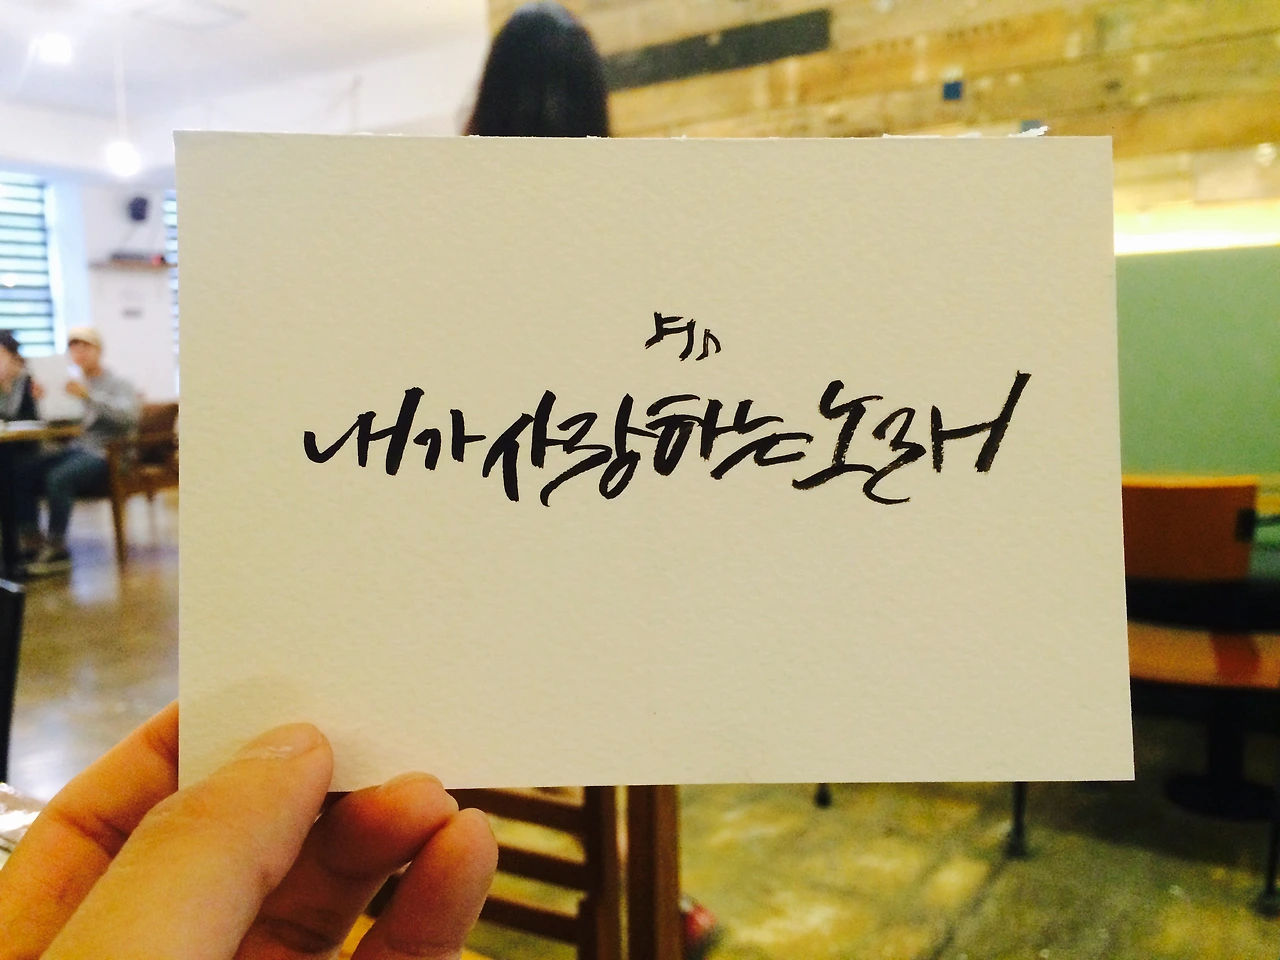 내가 사랑하는 노래